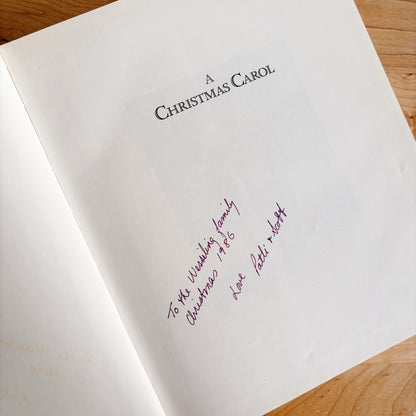 A
CHRISTMAS CAROL
To the Wessling family
Christmas 1986
Love Patti & Scott